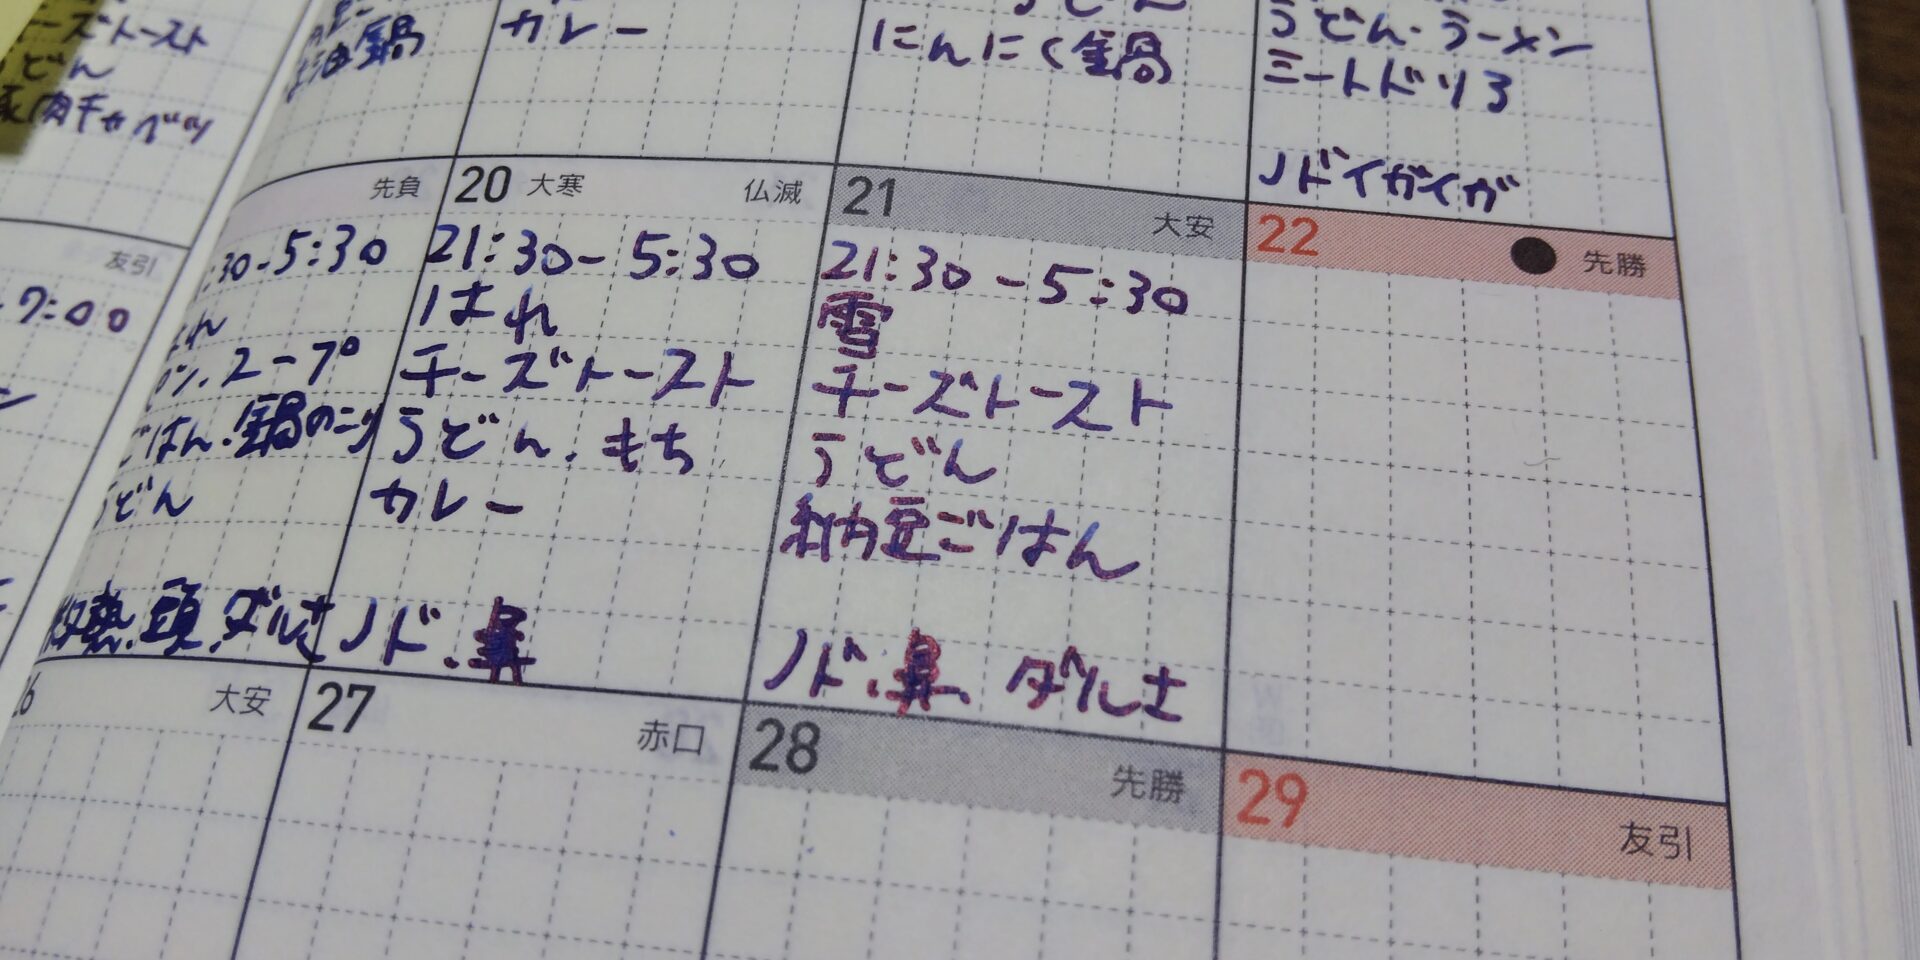 ーズトースト
うどん
肉キャベツ
友引
7:00
油鍋
カレー
うどん
にんにく鍋
うどん・ラーメン
ミートドリア
ノドイガイガ
先負
:30-5:30
2-7°
ごはん.鍋のこり
うどん
微熱.頭.ダルさ
20 大寒 仏滅
21:30-5:30
はれ
チーズトースト
うどん.もち
カレー
ノド.鼻
21 大安
21:30-5:30
雪
チーズトースト
うどん
納豆ごはん
ノド.鼻.ダルさ
22 ● 先勝
26 大安
27 赤口
28 先勝
29 友引